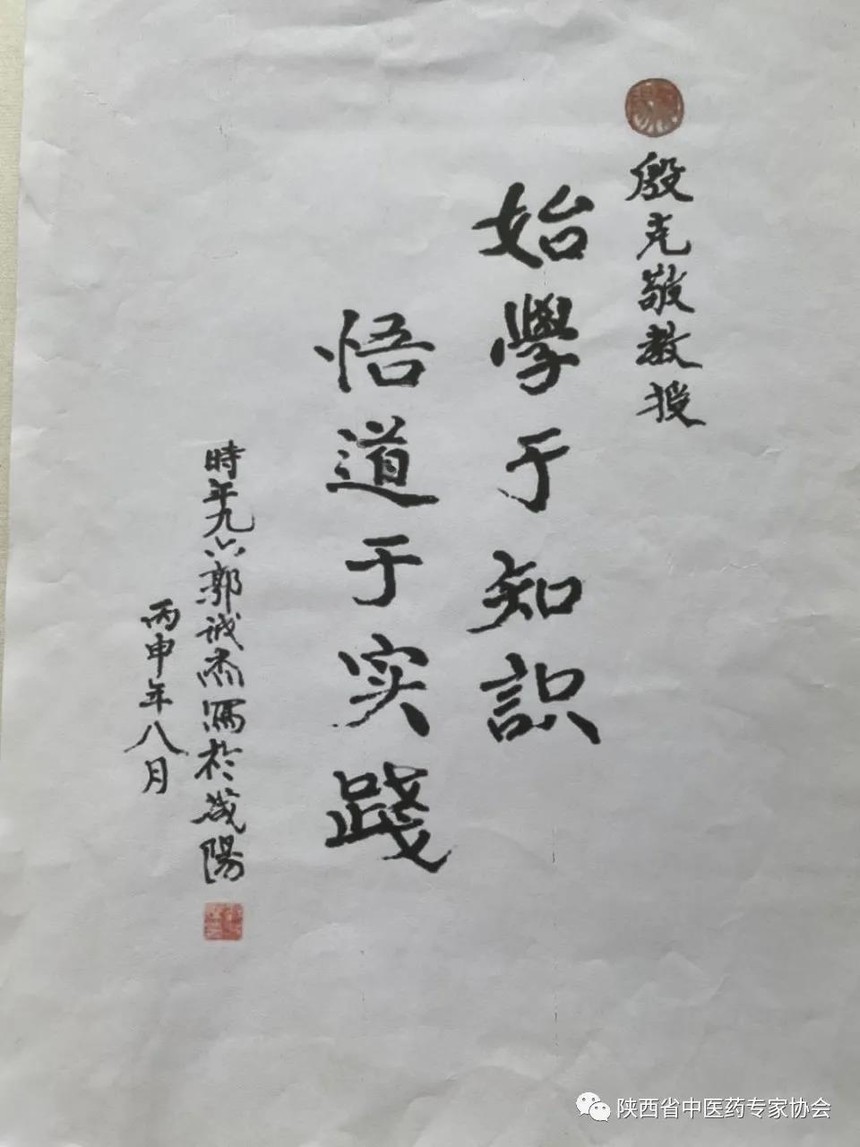 殷克敬教授
始學于知识
悟道于实踐
時年九六郭诚杰写於咸陽
丙申年八月
陕西省中医药专家协会